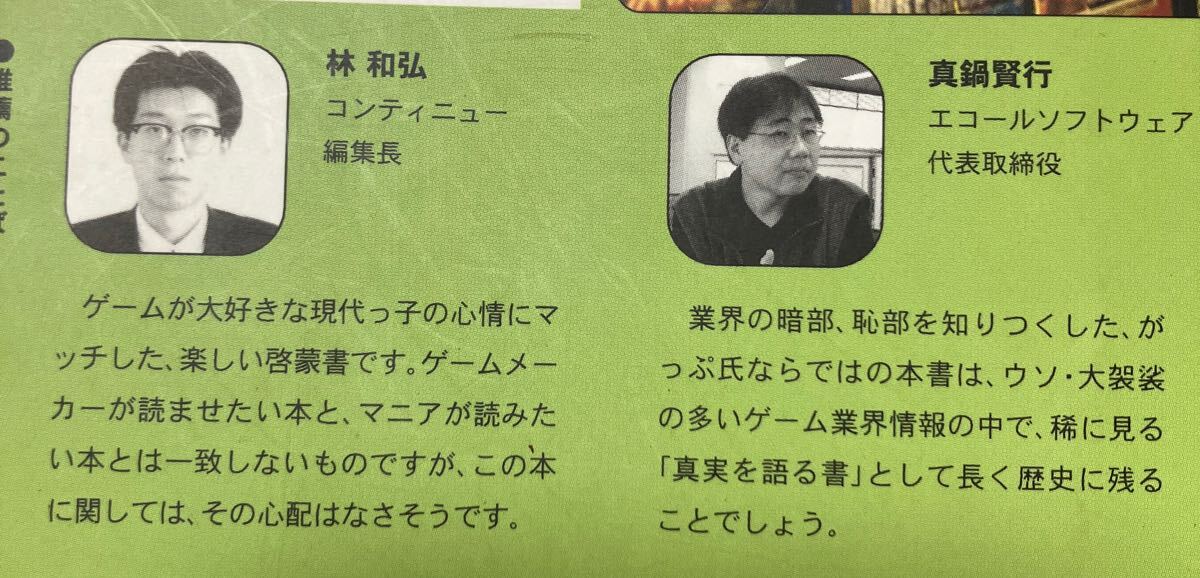 ●推薦のことば
林 和弘
コンティニュー
編集長
ゲームが大好きな現代っ子の心情にマ
ッチした、楽しい啓蒙書です。ゲームメー
カーが読ませたい本と、マニアが読みた
い本とは一致しないものですが、この本
に関しては、その心配はなさそうです。
真鍋賢行
エコールソフトウェア
代表取締役
業界の暗部、恥部を知りつくした、が
っぷ氏ならではの本書は、ウソ・大袈裟
の多いゲーム業界情報の中で、稀に見る
「真実を語る書」として長く歴史に残る
ことでしょう。